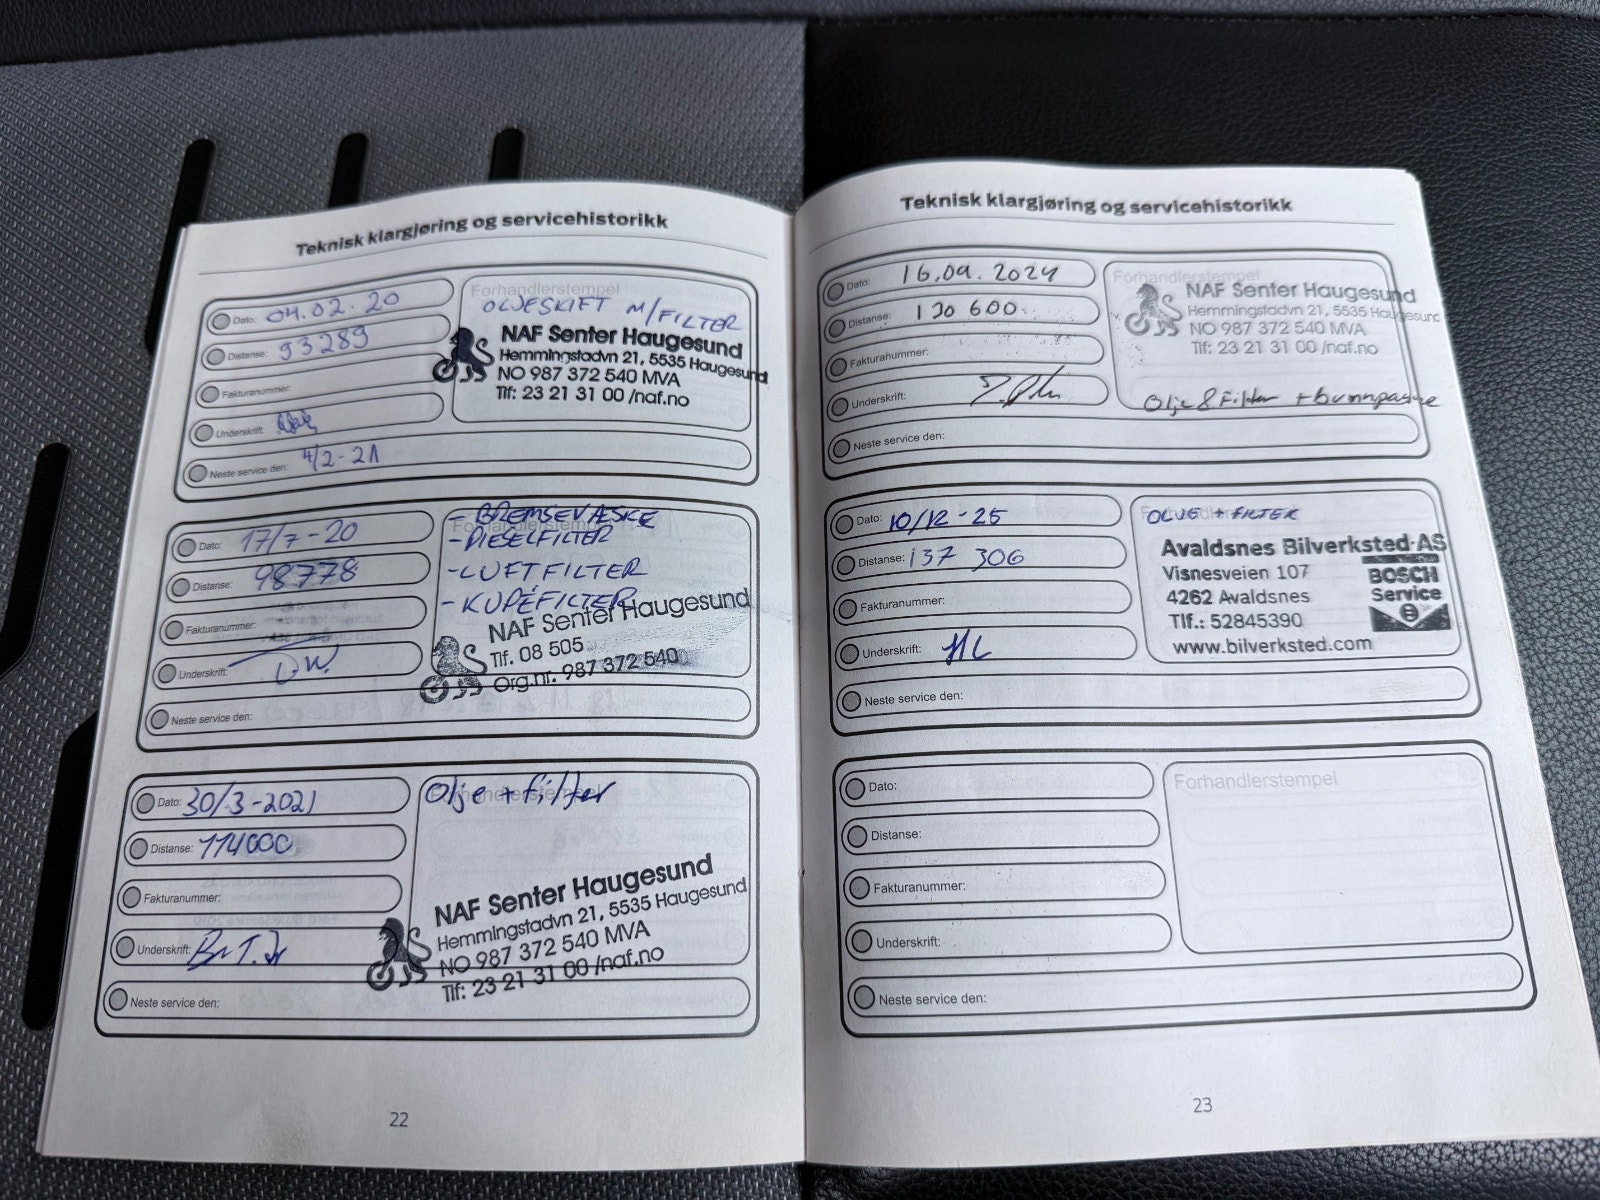 Teknisk klargjøring og servicehistorikk
Dato: 04.02.20
Distanse: 93289
Fakturanummer:
Underskrift:
Neste service den: 4/2-21
Forhandlerstempel
OLJESKIFT M/FILTER
NAF Senter Haugesund
Hemmingstadvn 21, 5535 Haugesund
NO 987 372 540 MVA
Tlf: 23 21 31 00 /naf.no
Dato: 17/7-20
Distanse: 98778
Fakturanummer:
Underskrift:
Neste service den:
Forhandlerstempel
- BREMSEVÆSKE
- DIESELFILTER
- LUFTFILTER
- KUPÉFILTER
NAF Senter Haugesund
Tlf. 08 505
Org.nr. 987 372 540
Dato: 30/3-2021
Distanse: 114000
Fakturanummer:
Underskrift:
Neste service den:
Forhandlerstempel
Olje + filter
NAF Senter Haugesund
Hemmingstadvn 21, 5535 Haugesund
NO 987 372 540 MVA
Tlf: 23 21 31 00 /naf.no
22
Teknisk klargjøring og servicehistorikk
Dato: 16.09.2024
Distanse: 130 600
Fakturanummer:
Underskrift:
Neste service den:
Forhandlerstempel
NAF Senter Haugesund
Hemmingstadvn 21, 5535 Haugesund
NO 987 372 540 MVA
Tlf: 23 21 31 00 /naf.no
Olje & Filter + bunnpanne
Dato: 10/12-25
Distanse: 137 306
Fakturanummer:
Underskrift: HL
Neste service den:
OLJE + FILTER
Avaldsnes Bilverksted AS
Visnesveien 107
4262 Avaldsnes
Tlf.: 52845390
www.bilverksted.com
BOSCH
Service
Dato:
Distanse:
Fakturanummer:
Underskrift:
Neste service den:
Forhandlerstempel
23